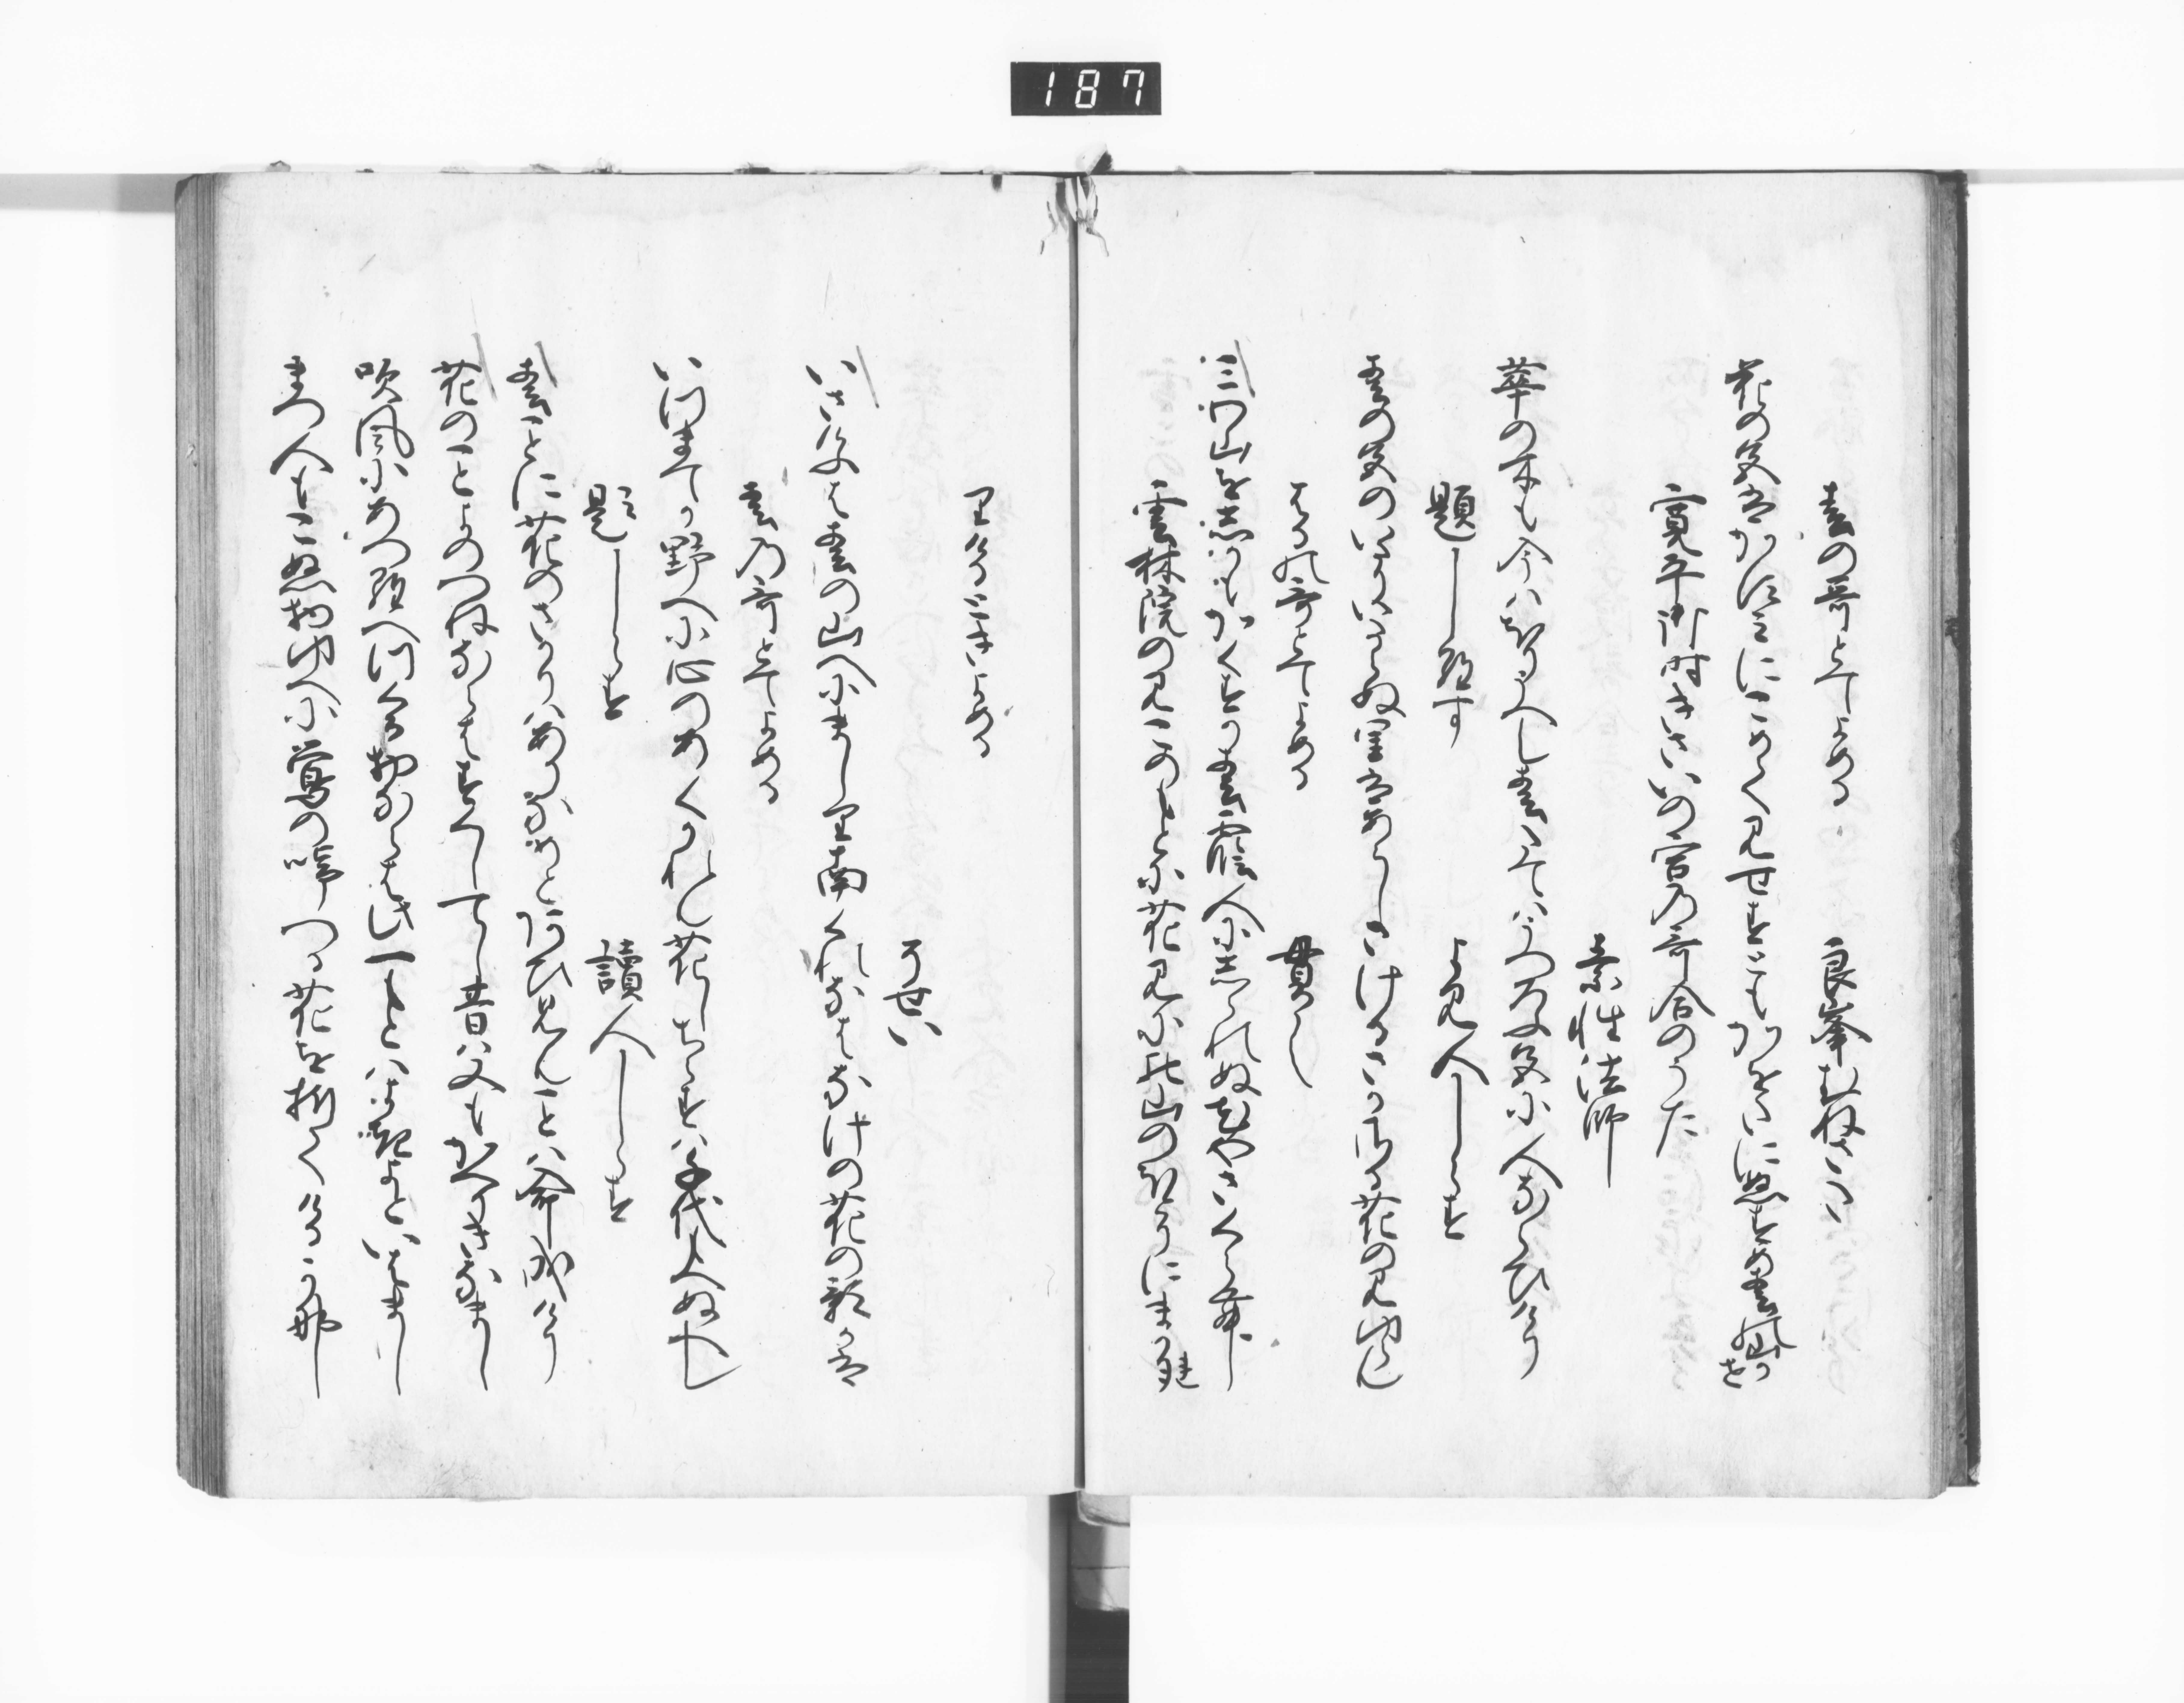 187
春の哥とてよめる 良峯むねさた
花の色はかすみにこめて見せすともかをたにぬすめ春の山かせ
寛平御時きさいの宮乃哥合のうた
素性法師
華の木も今はほりうへし春たてはうつろふ色に人ならひけり
題しらす よみ人しらす
春の色のいたりいたらぬ里はあらしさけるさかさる花の見ゆらん
はるの哥とてよめる 貫之
三わ山をしかもかくすか春霞人にしられぬ花やさくらむ
雲林院のみこのもとに花見に北山のほとりにまかれ
りける時によめる
そせい
いさけふは春の山へにましりなむくれなはなけの花の影かは
春乃哥とてよめる
いつまてか野へに心のあくかれん花しちらすは千代もへぬへし
題しらす 讀人しらす
春ことに花のさかりはありなめとあひ見ん事は命成けり
花のことよのつねならはすくしてし昔は又もかへりきなまし
吹風にあつらへつくる物ならは此一もとはよきよといはまし
まつ人もこぬ物ゆへに鶯の啼つる花を折てけるかな